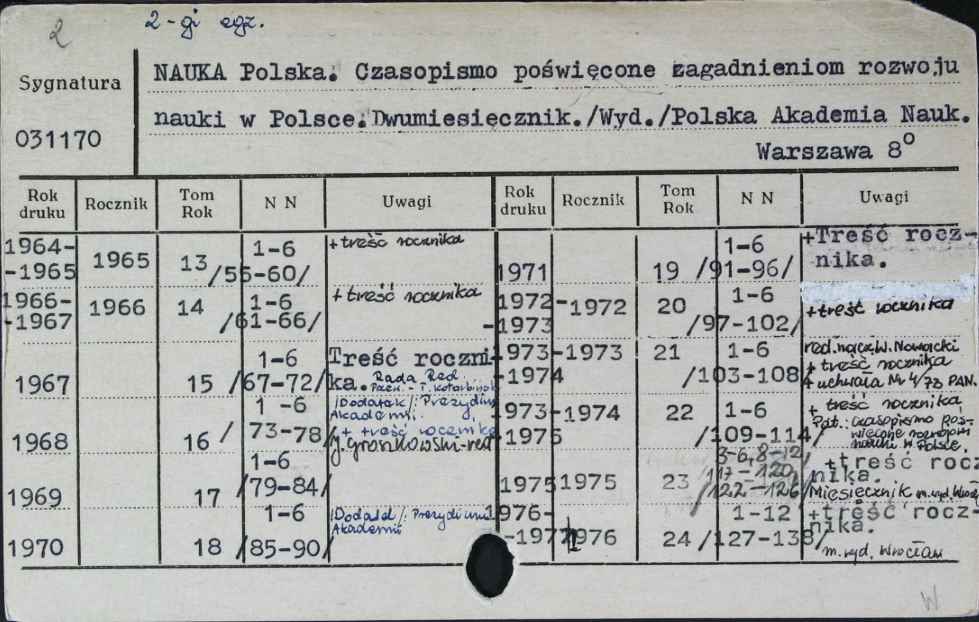 2 2-gi egz.
Sygnatura
031170
NAUKA Polska. Czasopismo poświęcone zagadnieniom rozwoju
nauki w Polsce. Dwumiesięcznik./Wyd./Polska Akademia Nauk.
Warszawa 8°
Rok druku Rocznik Tom Rok N N Uwagi Rok druku Rocznik Tom Rok N N Uwagi
1964-
-1965 1965 13 1-6
/55-60/ + treść rocznika
1966-
-1967 1966 14 1-6
/61-66/ + treść rocznika
1967 15 1-6
/67-72/ Treść roczni-
ka. Rada Red.
1968 16 1-6
/73-78/ /Dodatek/: Prezydium
Akademii.
+ treść rocznika
J. Groszkowski-red
1969 17 1-6
/79-84/
1970 18 1-6
/85-90/ /Dodatek/: Prezydium
Akademii
1971 19 1-6
/91-96/ +Treść rocz-
nika.
1972-
-1973 1972 20 1-6
/97-102/ + treść rocznika
1973-
-1974 1973 21 1-6
/103-108/ red. nacz. W. Nowacki
+ treść rocznika
+ uchwała Nr 4/73 PAN.
1973-
-1975 1974 22 1-6
/109-114/ + treść rocznika
Pdt.: Czasopismo poś-
więcone rozwojowi
nauki w Polsce.
1975 1975 23 3-6, 8-12
/117-120,
/122-126/ +treść rocz
nika.
Miesięcznik m. wyd. Wroc
1976-
-1977 1976 24 1-12
/127-138/ +treść rocz-
nika.
m. wyd. Wrocław
W